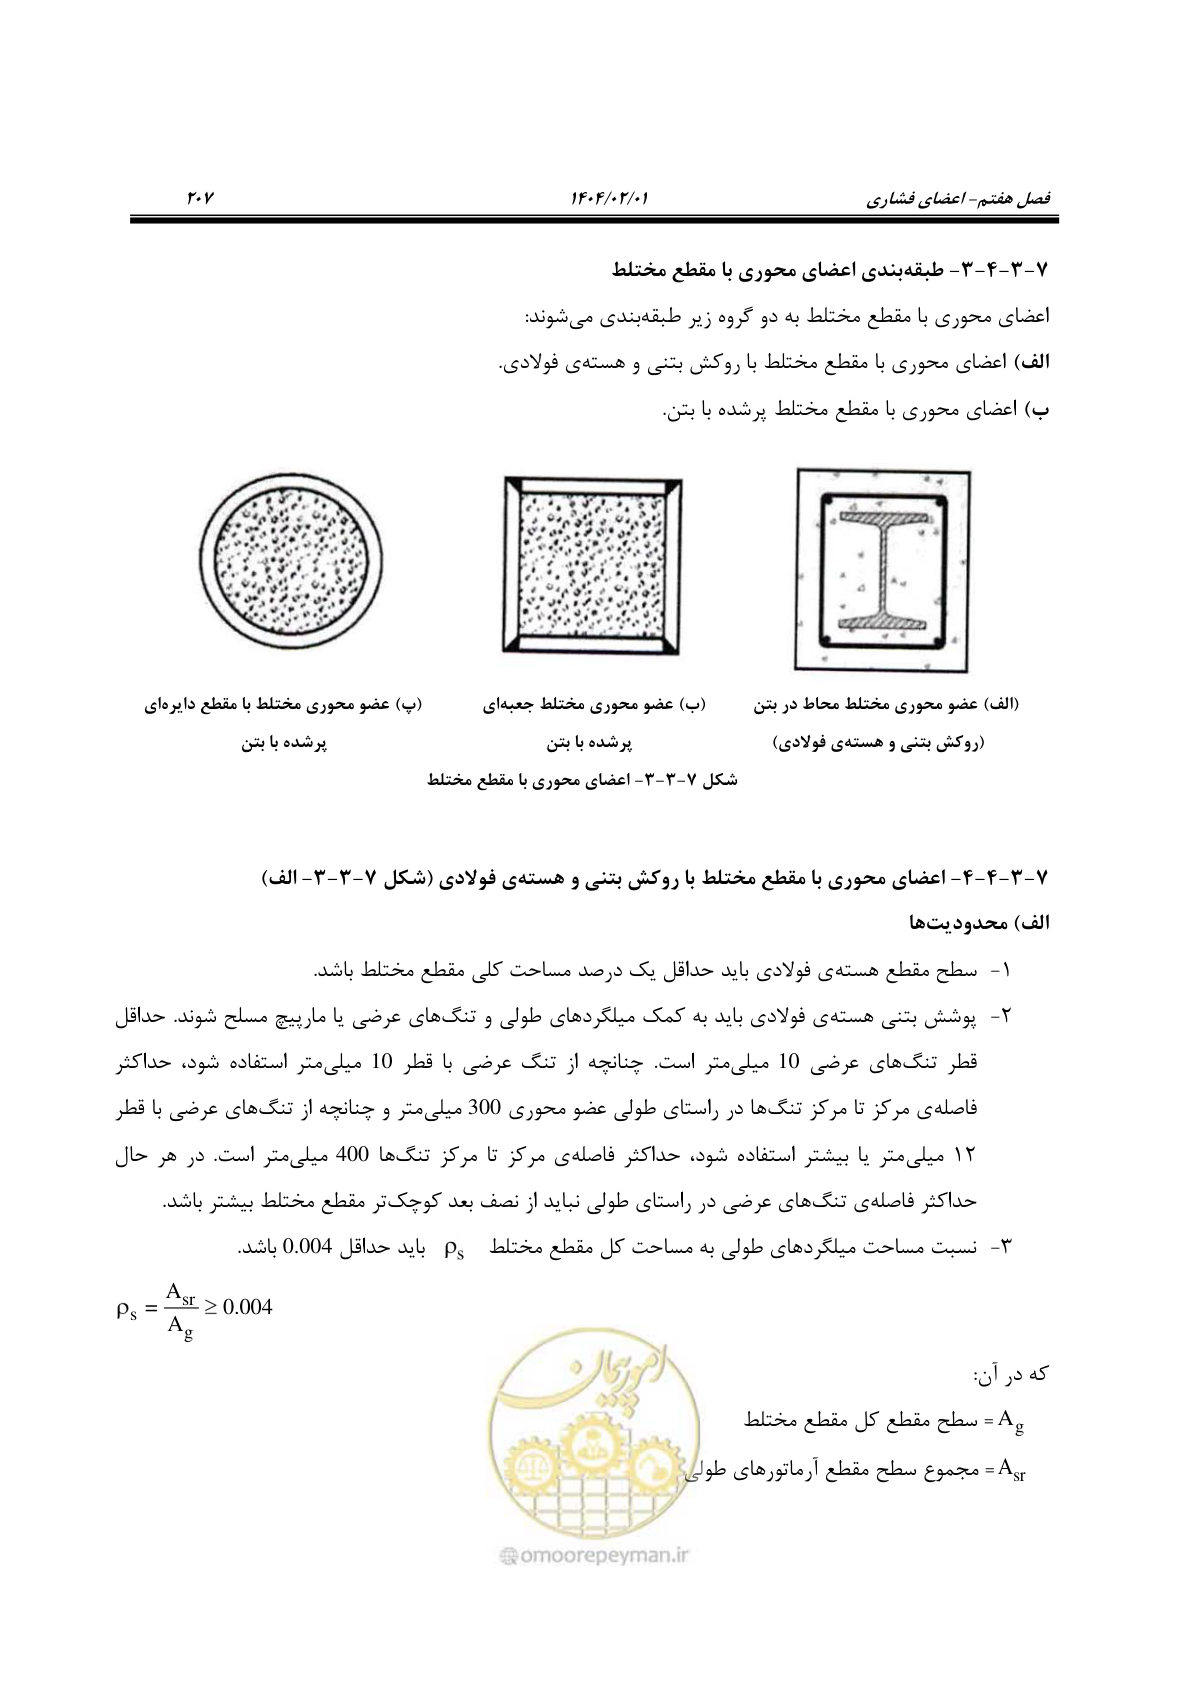 فصل هفتم- اعضای فشاری ۱۴۰۴/۰۲/۰۱ ۲۰۷
۷-۳-۴-۳- طبقه‌بندی اعضای محوری با مقطع مختلط
اعضای محوری با مقطع مختلط به دو گروه زیر طبقه‌بندی می‌شوند:
الف) اعضای محوری با مقطع مختلط با روکش بتنی و هسته‌ی فولادی.
ب) اعضای محوری با مقطع مختلط پرشده با بتن.
(الف) عضو محوری مختلط محاط در بتن (ب) عضو محوری مختلط جعبه‌ای (پ) عضو محوری مختلط با مقطع دایره‌ای
(روکش بتنی و هسته‌ی فولادی) پرشده با بتن پرشده با بتن
شکل ۷-۳-۳- اعضای محوری با مقطع مختلط
۷-۳-۴-۴- اعضای محوری با مقطع مختلط با روکش بتنی و هسته‌ی فولادی (شکل ۷-۳-۳- الف)
الف) محدودیت‌ها
۱- سطح مقطع هسته‌ی فولادی باید حداقل یک درصد مساحت کلی مقطع مختلط باشد.
۲- پوشش بتنی هسته‌ی فولادی باید به کمک میلگردهای طولی و تنگ‌های عرضی یا مارپیچ مسلح شوند. حداقل
قطر تنگ‌های عرضی 10 میلی‌متر است. چنانچه از تنگ عرضی با قطر 10 میلی‌متر استفاده شود، حداکثر
فاصله‌ی مرکز تا مرکز تنگ‌ها در راستای طولی عضو محوری 300 میلی‌متر و چنانچه از تنگ‌های عرضی با قطر
۱۲ میلی‌متر یا بیشتر استفاده شود، حداکثر فاصله‌ی مرکز تا مرکز تنگ‌ها 400 میلی‌متر است. در هر حال
حداکثر فاصله‌ی تنگ‌های عرضی در راستای طولی نباید از نصف بعد کوچک‌تر مقطع مختلط بیشتر باشد.
۳- نسبت مساحت میلگردهای طولی به مساحت کل مقطع مختلط ρs باید حداقل 0.004 باشد.
ρs = Asr / Ag ≥ 0.004
که در آن:
Ag = سطح مقطع کل مقطع مختلط
Asr = مجموع سطح مقطع آرماتورهای طولی
امور پیمان
@omoorepeyman.ir